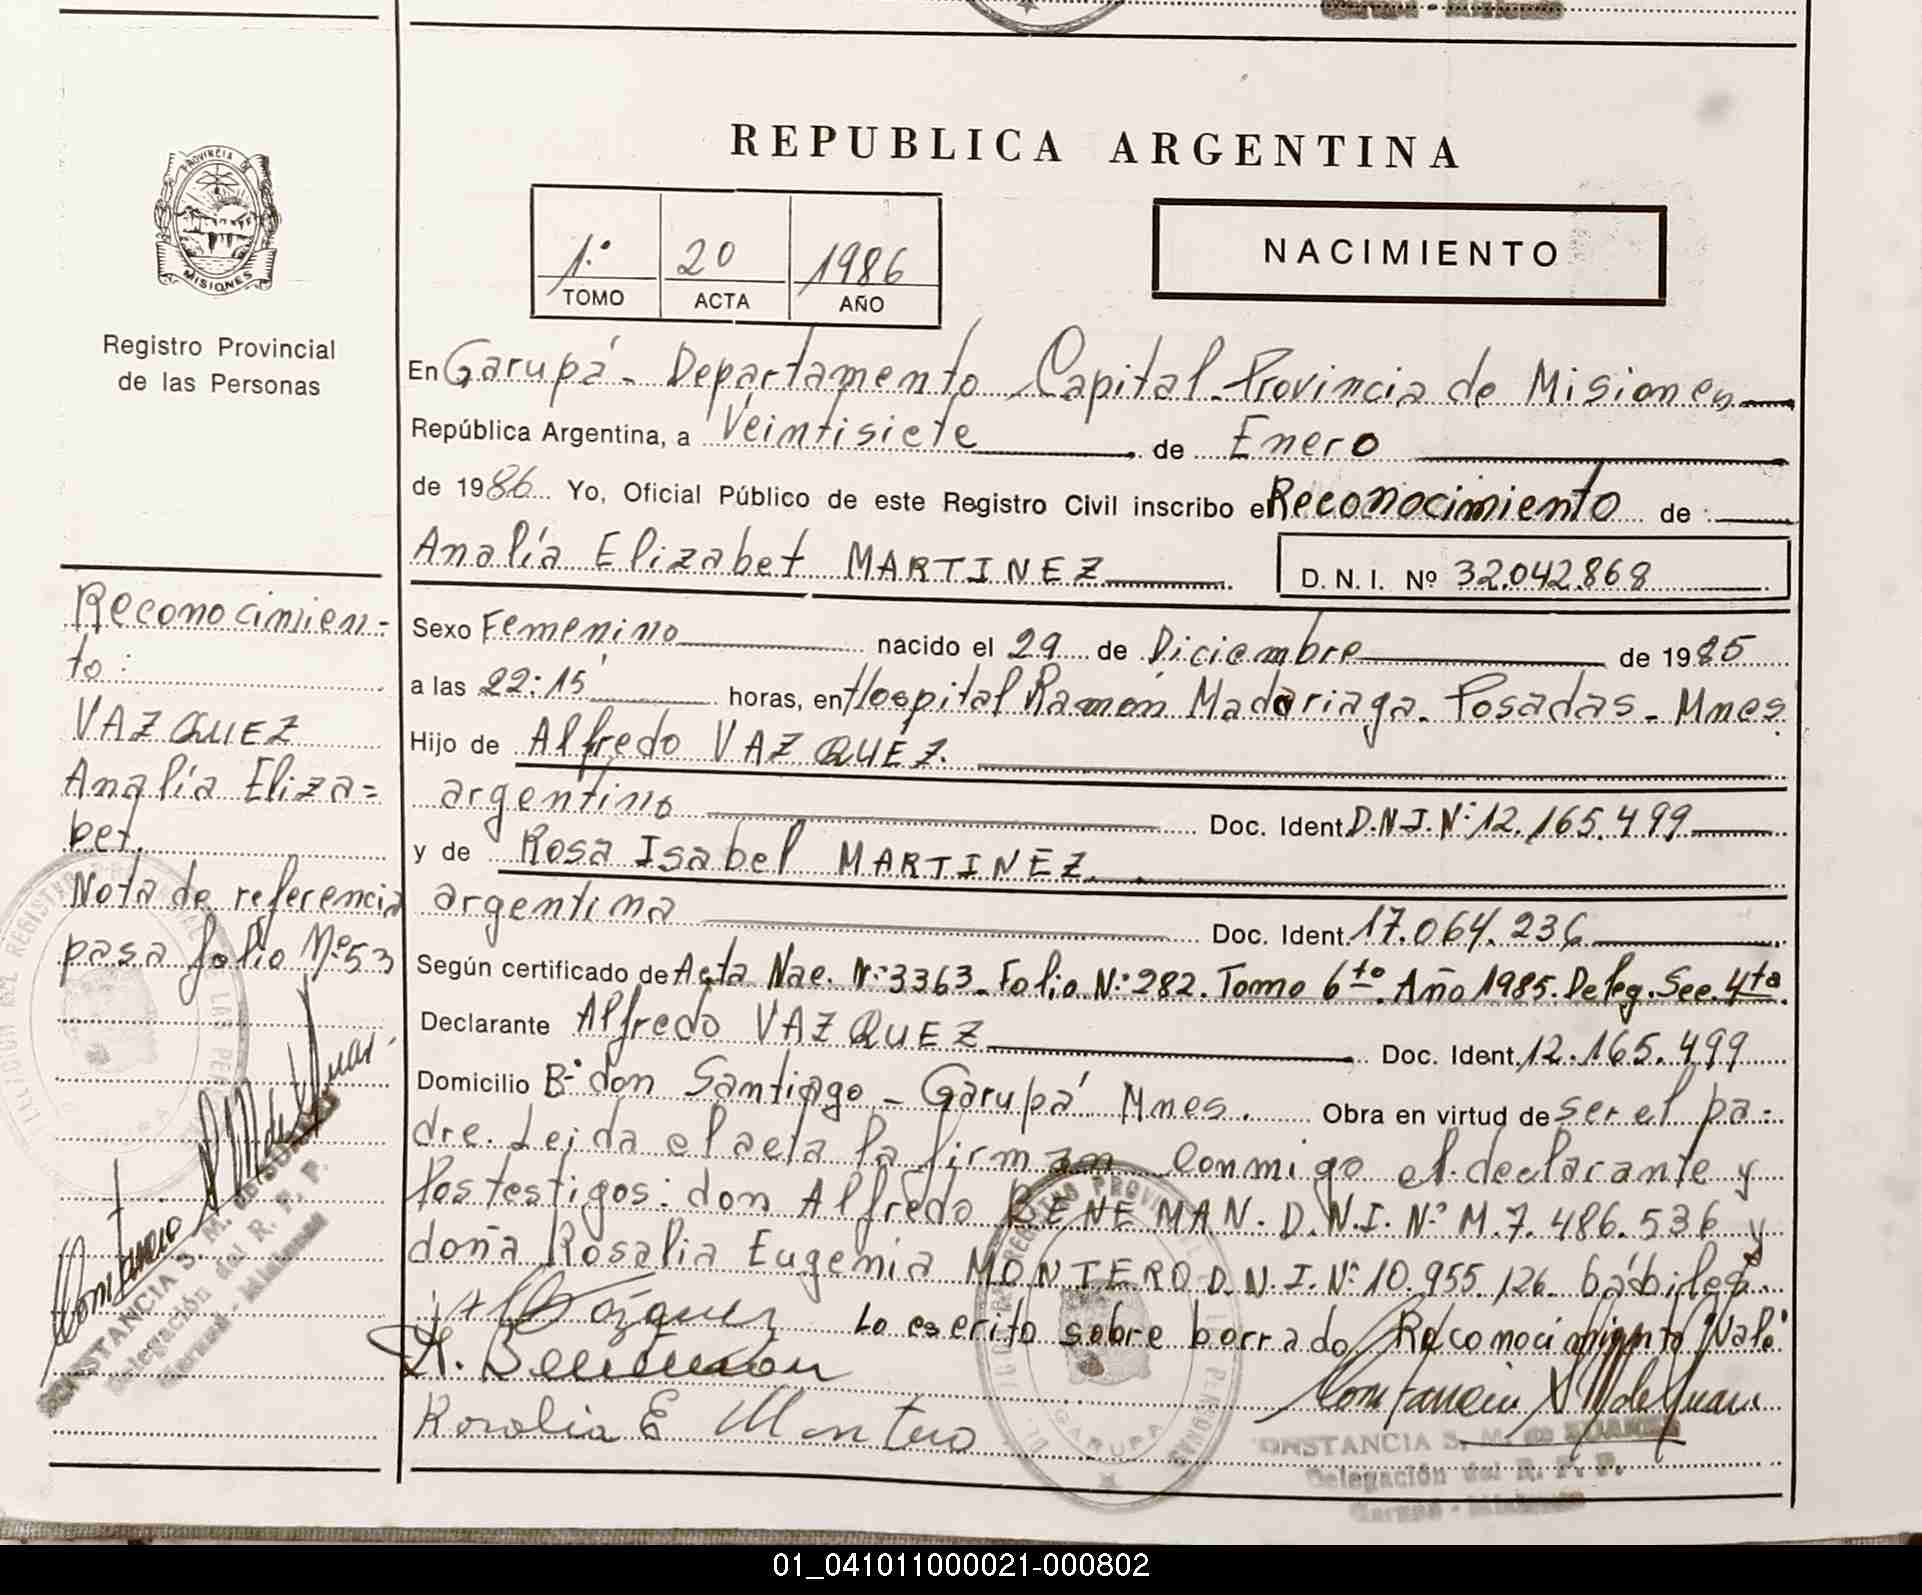 REPUBLICA ARGENTINA
PROVINCIA DE
MISIONES
Registro Provincial
de las Personas
1º 20 1986
TOMO ACTA AÑO
NACIMIENTO
En Garupá - Departamento Capital - Provincia de Misiones
República Argentina, a Veintisiete de Enero
de 1986 Yo, Oficial Público de este Registro Civil inscribo el Reconocimiento de
Analía Elizabet MARTINEZ D. N. I. Nº 32.042.868
Sexo Femenino nacido el 29 de Diciembre de 1985
a las 22:15 horas, en Hospital Ramón Madariaga. Posadas - Mnes
Hijo de Alfredo VAZQUEZ.
argentino Doc. Ident. D.N.I. Nº 12.165.499
y de Rosa Isabel MARTINEZ
argentina Doc. Ident. 17.064.236
Según certificado de Acta Nac. Nº 3363 - Folio Nº 282. Tomo 6to. Año 1985. Deleg. Sec. 4ta.
Declarante Alfredo VAZQUEZ Doc. Ident. 12.165.499
Domicilio Bº don Santiago - Garupá Mnes. Obra en virtud de ser el pa-
dre. Leida el acta la firman conmigo el declarante y
los testigos: don Alfredo BENEMAN. D.N.I. Nº M.7.486.536 y
doña Rosalia Eugenia MONTERO D.N.I. Nº 10.955.126. hábiles.
Lo escrito sobre borrado "Reconocimiento" Vale.
Vázquez
A. Beneman
Rosalia E Montero
GARUPA
CONSTANCIA S. M. de
Delegación del R. P. P.
Garupá - Misiones
Reconocimien-
to:
VAZQUEZ
Analía Eliza=
bet.
Nota de referencia
pasa folio Nº 53
CONSTANCIA S. M. de
Delegación del R. P. P.
Garupá - Misiones
01_041011000021-000802